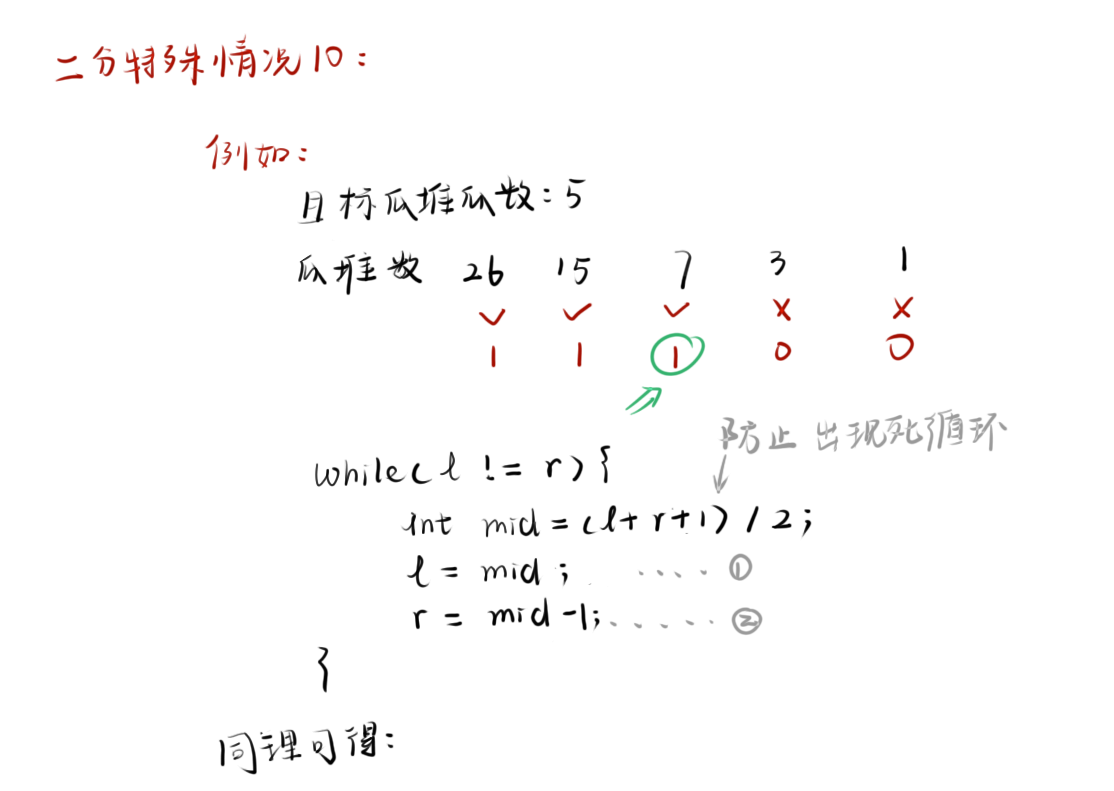 二分特殊情况10:
例如:
目标瓜堆瓜数:5
瓜堆数 26 15 7 3 1
✓ ✓ ✓ × ×
1 1 1 0 0
防止出现死循环
while(l != r){
int mid=(l+r+1)/2;
l = mid; ····①
r = mid-1;·····②
}
同理可得: